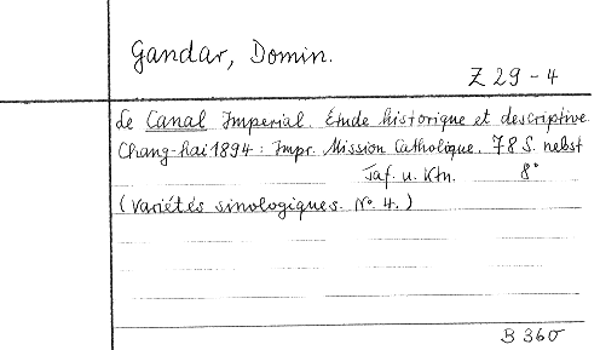 Gandar, Domin.
Z 29-4
Le Canal Imperial. Étude historique et descriptive.
Chang-hai 1894: Impr. Mission Catholique. 78 S. nebst
Taf. u. Ktn. 8°
(Variétés sinologiques. No. 4.)
B 360